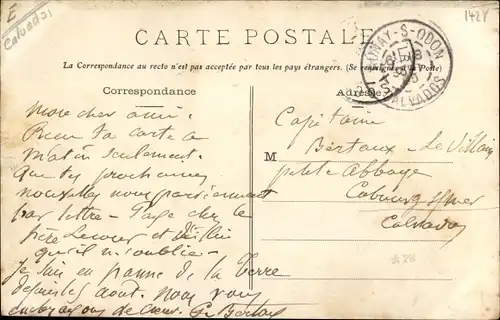 E
Calvados
1428
CARTE POSTALE
La Correspondance au recto n'est pas acceptée par tous les pays étrangers. (Se renseigner à la Poste)
AUNAY-S-ODON
CALVADOS
Correspondance
Adresse
Mon cher ami.
Reçu ta carte ce
matin seulement.
Que tes prochaines
nouvelles nous parviennent
par lettre -
père et
qu'il n'oublie -
Je suis en panne de la Terre
depuis les août. Nous vous
embrassons de cœur. G. Bertaux
Capitaine
M Bertaux - Le Villain
petite Abbaye
Cabourg s/mer
Calvados